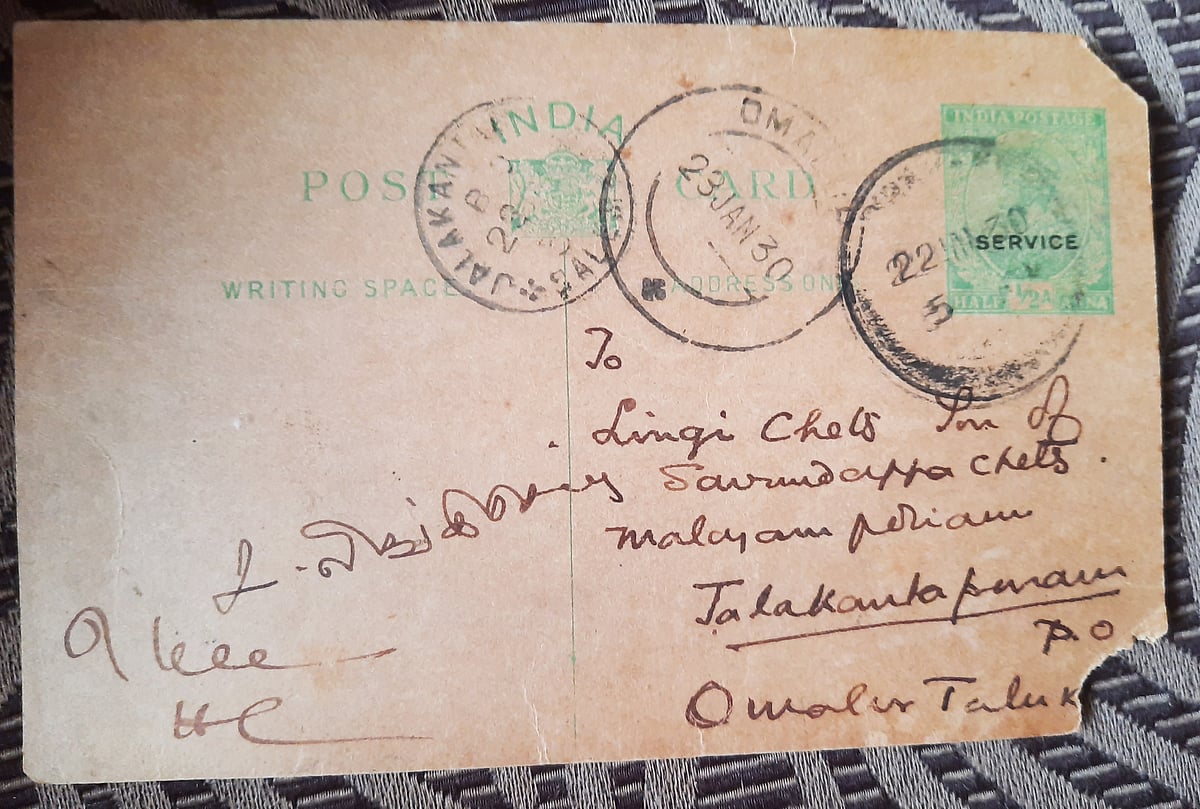 INDIA
POST CARD
WRITING SPACE ADDRESS ON
INDIA POSTAGE
SERVICE
HALF ½A ANNA
JALAKANT
B
SAL
OMA
23 JAN 30
22 JN 30
5
To
Lingi Chets Son of
Savundappa Chets.
malayam periam
Jalakantapuram
P.O
Omalur Taluk
HC